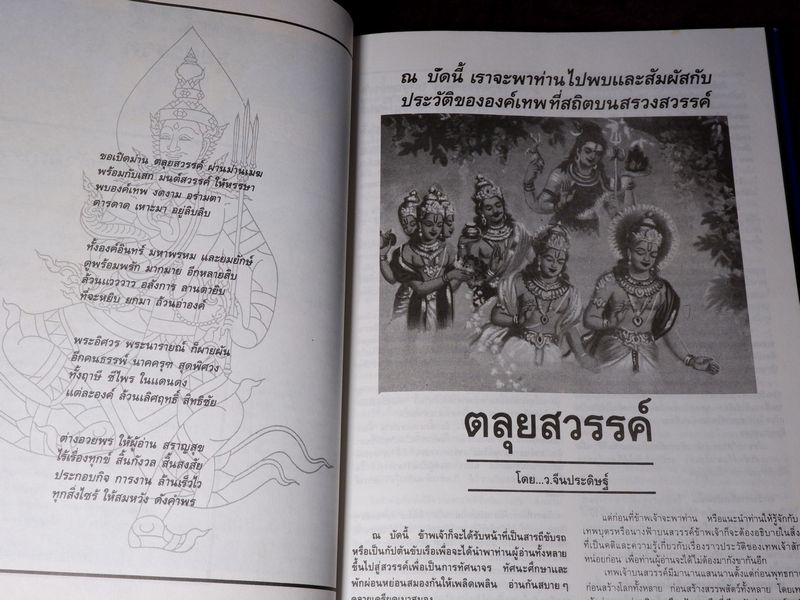 ขอเปิดม่าน ตลุยสวรรค์ ผ่านม่านเมฆ
พร้อมกับเสก มนต์สวรรค์ ให้หรรษา
พบองค์เทพ งดงาม อรามตา
ดารดาด เหาะมา อยู่ลิบลิบ
ทั้งองค์อินทร์ มหาพรหม และยมยักษ์
ดูพร้อมพรัก มากมาย อีกหลายสิบ
ล้วนแวววาว อลังการ ลานตายิบ
ที่จะหยิบ ยกมา ล้วนอ่าองค์
พระอิศวร พระนารายณ์ ก็ผายผัน
อีกคนธรรพ์ นาคครุฑ สุดพิศวง
ทั้งฤาษี ชีไพร ในแดนดง
แต่ละองค์ ล้วนเลิศฤทธิ์ สิทธิชัย
ต่างอวยพร ให้ผู้อ่าน สราญสุข
ไร้เรื่องทุกข์ สิ้นกังวล สิ้นสงสัย
ประกอบกิจ การงาน ล้านเร็วไว
ทุกสิ่งไซร้ ให้สมหวัง ดังคำพร
ณ บัดนี้ เราจะพาท่านไปพบและสัมผัสกับ
ประวัติขององค์เทพที่สถิตบนสรวงสวรรค์
ตลุยสวรรค์
โดย...ว.จีนประดิษฐ์
ณ บัดนี้ ข้าพเจ้าก็จะได้รับหน้าที่เป็นสารถีขับรถ
หรือเป็นกัปตันขับเรือเพื่อจะได้นำพาท่านผู้อ่านทั้งหลาย
ขึ้นไปสู่สวรรค์เพื่อเป็นการทัศนาจร ทัศนะศึกษาและ
พักผ่อนหย่อนสมองกันให้เพลิดเพลิน อ่านกันสบาย ๆ
คลายเครียดเบาสมอง
แต่ก่อนที่ข้าพเจ้าจะพาท่าน หรือแนะนำท่านให้รู้จักกับ
เทพบุตรหรือนางฟ้าบนสวรรค์ข้าพเจ้าก็จะต้องอธิบายในสิ่ง
ที่เป็นคติและความรู้เกี่ยวกับเรื่องราวประวัติของเทพเจ้าสัก
หน่อยก่อน เพื่อท่านผู้อ่านจะได้ไม่ต้องมากังขากันอีก
เทพเจ้าบนสวรรค์มีมานานแสนนานตั้งแต่ก่อนพุทธกาล
ก่อนสร้างโลกทั้งหลาย ก่อนสร้างสรรพสัตว์ทั้งหลาย